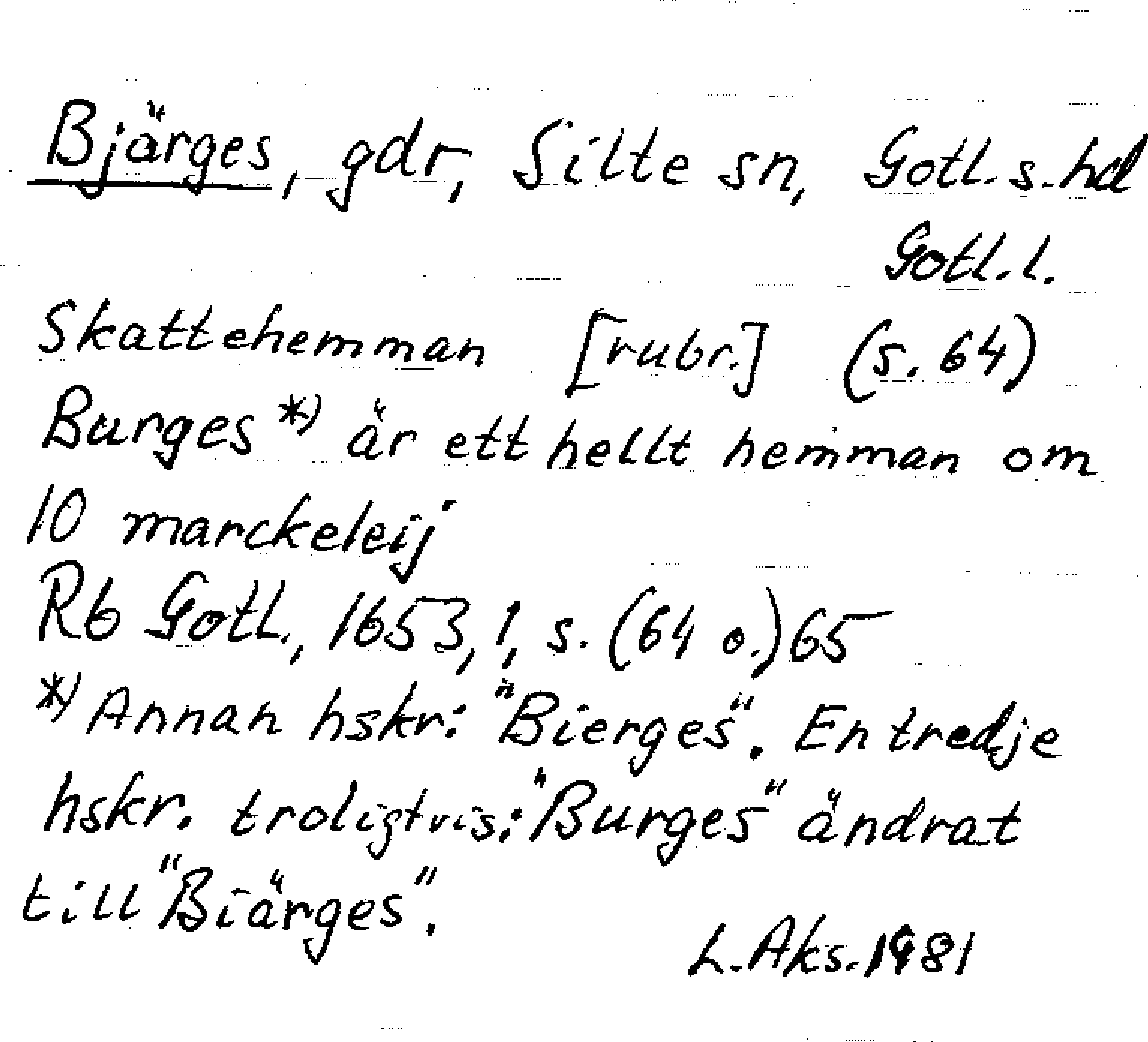 Bjärges, gdr, Silte sn, Gotl. s. hd
Gotl. l.
Skattehemman [rubr.] (s. 64)
Burges *) är ett hellt hemman om
10 marckeleij
Rb Gotl., 1653, 1, s. (64 o.) 65
*) Annan hskr: "Bierges". En tredje
hskr. troligtvis: "Burges" ändrat
till "Biärges".
L. Aks. 1981